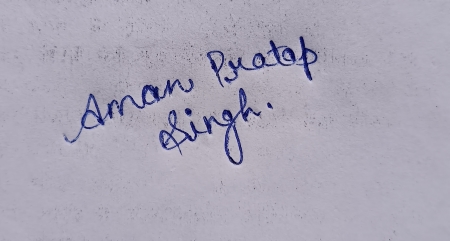 Aman Pratap
Singh.